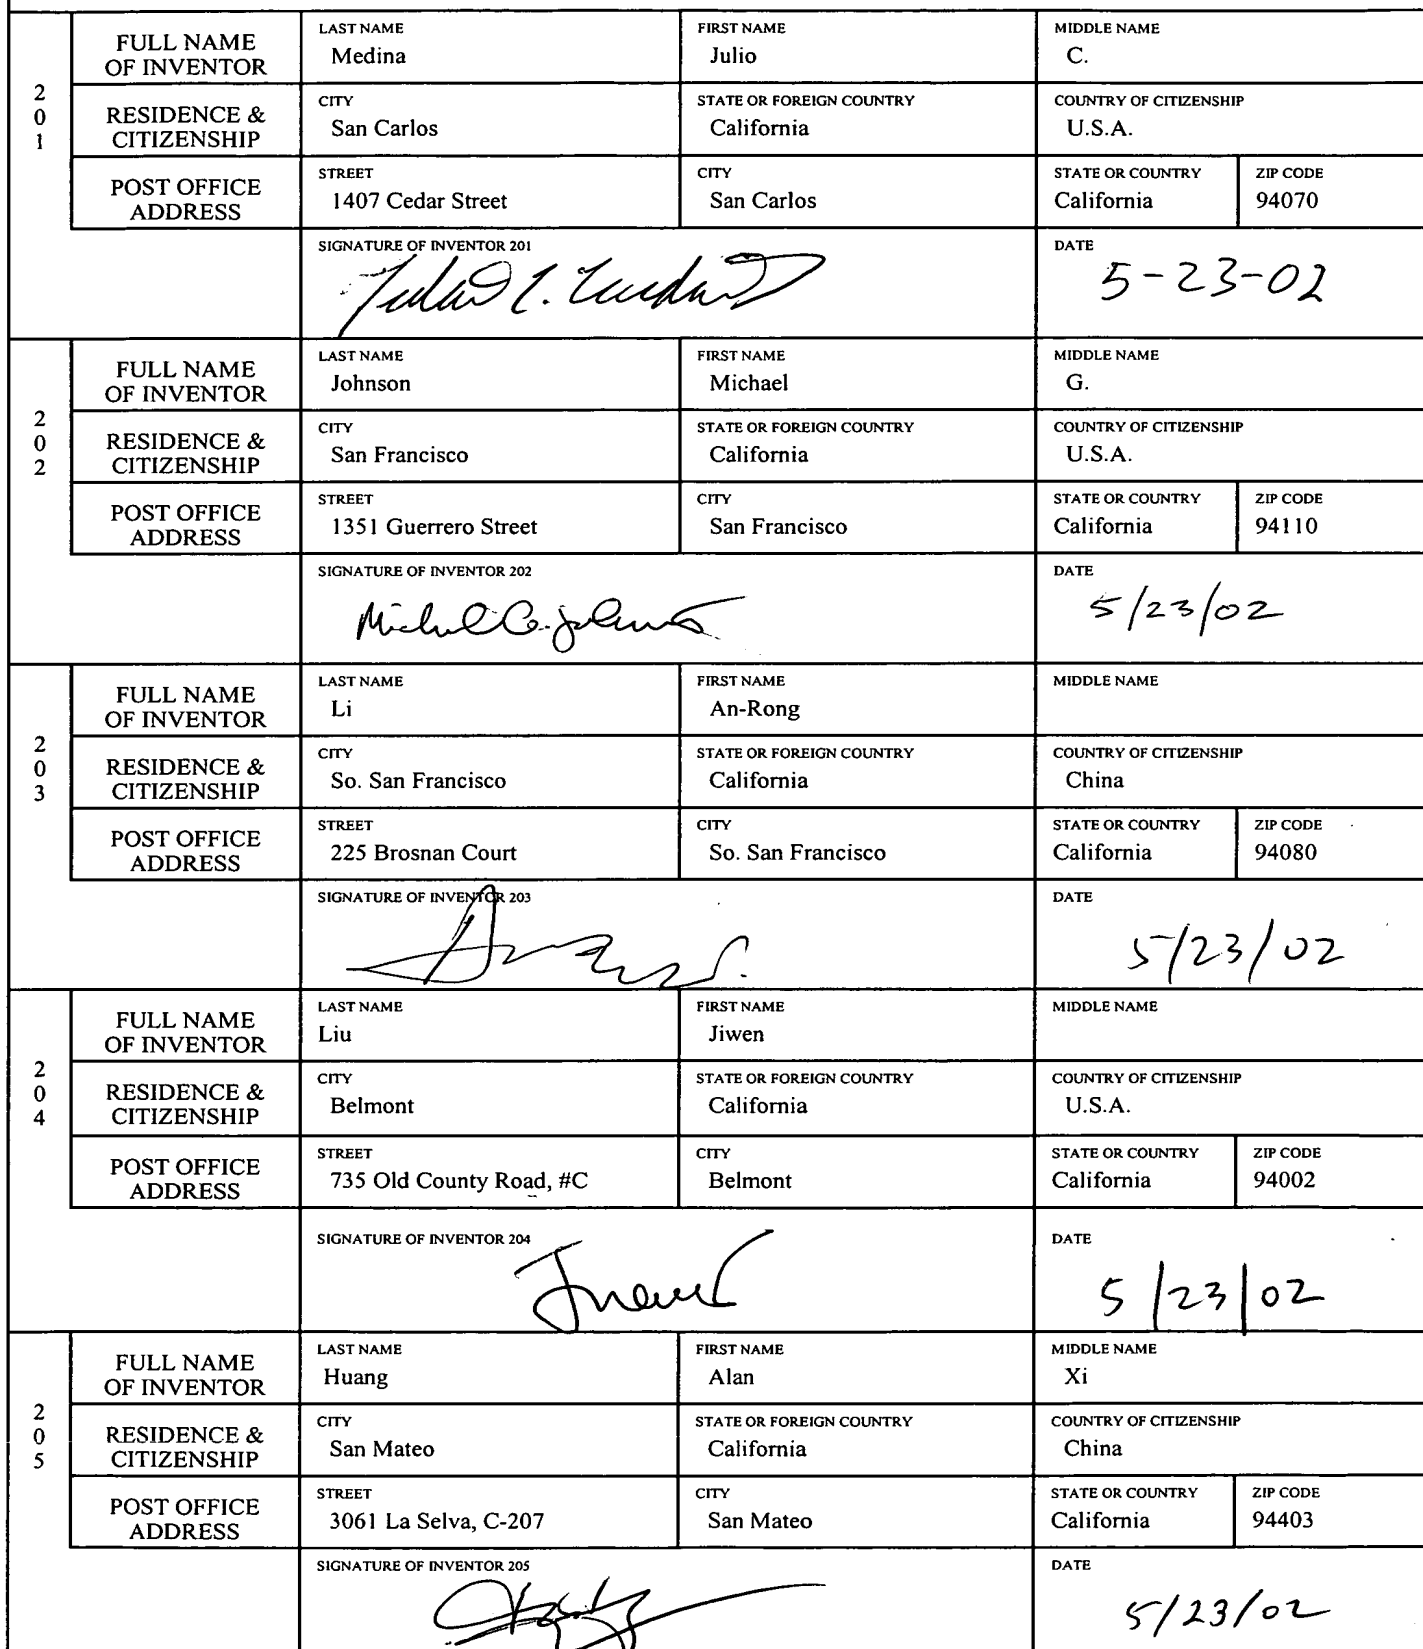 FULL NAME OF INVENTOR
LAST NAME
Medina
FIRST NAME
Julio
MIDDLE NAME
C.
201
RESIDENCE & CITIZENSHIP
CITY
San Carlos
STATE OR FOREIGN COUNTRY
California
COUNTRY OF CITIZENSHIP
U.S.A.
POST OFFICE ADDRESS
STREET
1407 Cedar Street
CITY
San Carlos
STATE OR COUNTRY
California
ZIP CODE
94070
SIGNATURE OF INVENTOR 201
DATE
5-23-02
FULL NAME OF INVENTOR
LAST NAME
Johnson
FIRST NAME
Michael
MIDDLE NAME
G.
202
RESIDENCE & CITIZENSHIP
CITY
San Francisco
STATE OR FOREIGN COUNTRY
California
COUNTRY OF CITIZENSHIP
U.S.A.
POST OFFICE ADDRESS
STREET
1351 Guerrero Street
CITY
San Francisco
STATE OR COUNTRY
California
ZIP CODE
94110
SIGNATURE OF INVENTOR 202
Michael G. Johnson
DATE
5/23/02
FULL NAME OF INVENTOR
LAST NAME
Li
FIRST NAME
An-Rong
MIDDLE NAME
203
RESIDENCE & CITIZENSHIP
CITY
So. San Francisco
STATE OR FOREIGN COUNTRY
California
COUNTRY OF CITIZENSHIP
China
POST OFFICE ADDRESS
STREET
225 Brosnan Court
CITY
So. San Francisco
STATE OR COUNTRY
California
ZIP CODE
94080
SIGNATURE OF INVENTOR 203
DATE
5/23/02
FULL NAME OF INVENTOR
LAST NAME
Liu
FIRST NAME
Jiwen
MIDDLE NAME
204
RESIDENCE & CITIZENSHIP
CITY
Belmont
STATE OR FOREIGN COUNTRY
California
COUNTRY OF CITIZENSHIP
U.S.A.
POST OFFICE ADDRESS
STREET
735 Old County Road, #C
CITY
Belmont
STATE OR COUNTRY
California
ZIP CODE
94002
SIGNATURE OF INVENTOR 204
DATE
5/23/02
FULL NAME OF INVENTOR
LAST NAME
Huang
FIRST NAME
Alan
MIDDLE NAME
Xi
205
RESIDENCE & CITIZENSHIP
CITY
San Mateo
STATE OR FOREIGN COUNTRY
California
COUNTRY OF CITIZENSHIP
China
POST OFFICE ADDRESS
STREET
3061 La Selva, C-207
CITY
San Mateo
STATE OR COUNTRY
California
ZIP CODE
94403
SIGNATURE OF INVENTOR 205
DATE
5/23/02